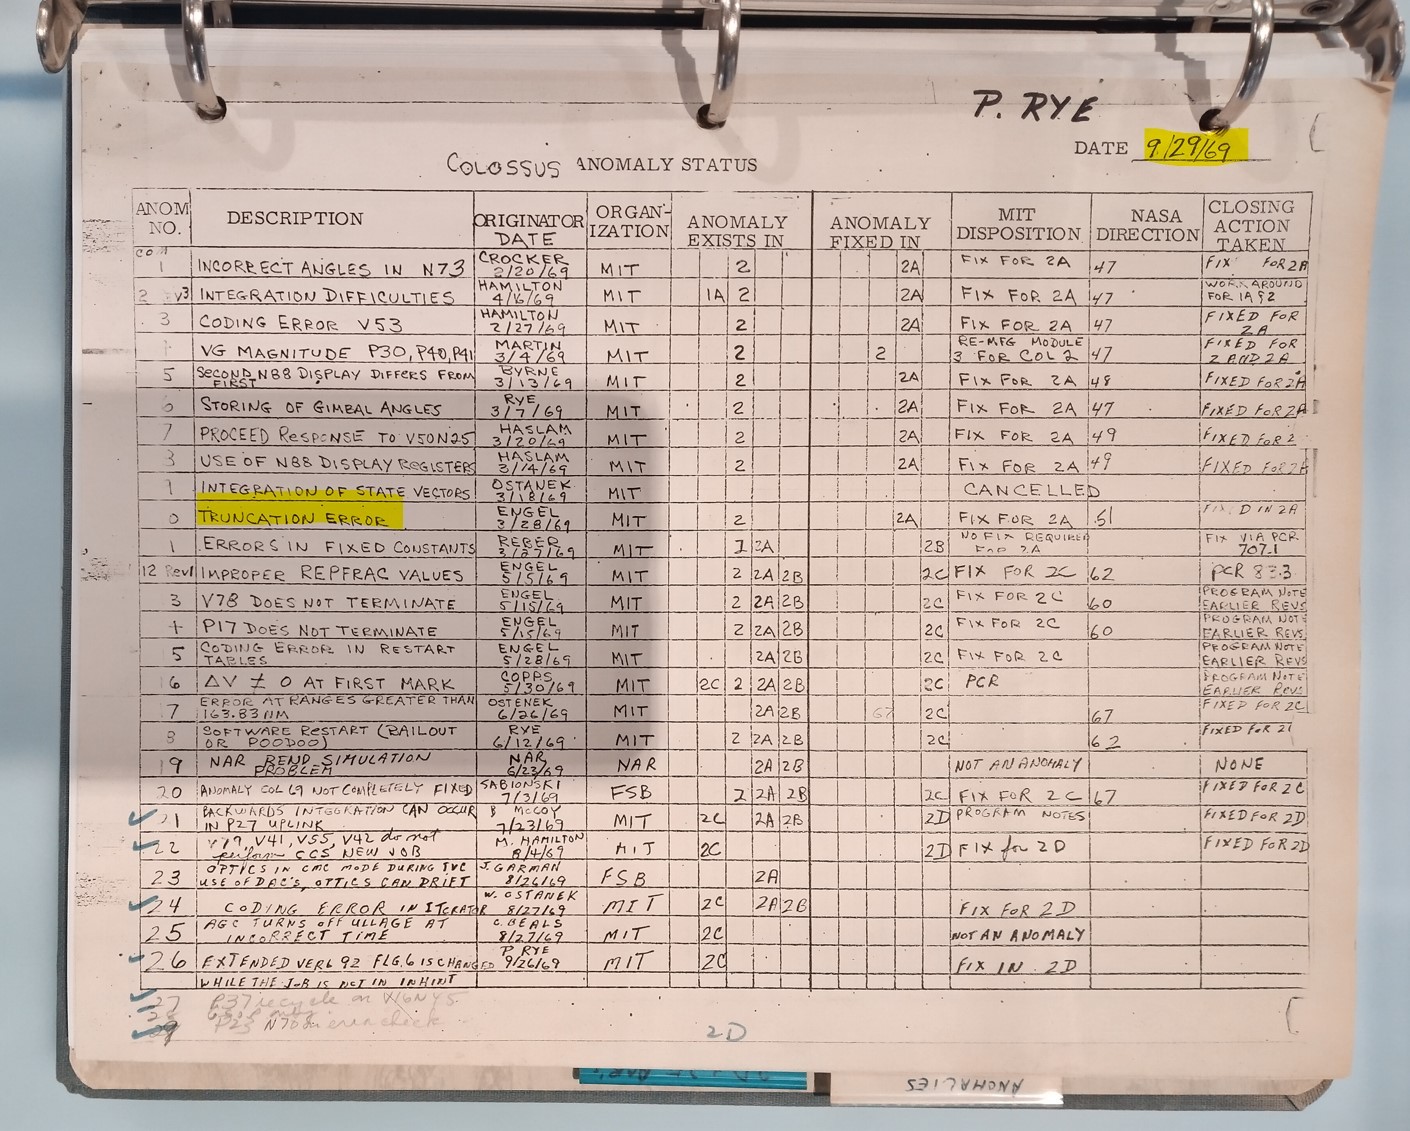 P. RYE
DATE 9/29/69
COLOSSUS ANOMALY STATUS
ANOM NO. DESCRIPTION ORIGINATOR DATE ORGAN-IZATION ANOMALY EXISTS IN ANOMALY FIXED IN MIT DISPOSITION NASA DIRECTION CLOSING ACTION TAKEN
COM 1 INCORRECT ANGLES IN N73 CROCKER 2/20/69 MIT 2 2A FIX FOR 2A 47 FIX FOR 2A
2 INTEGRATION DIFFICULTIES HAMILTON 4/6/69 MIT 1A 2 2A FIX FOR 2A 47 WORKAROUND FOR 1A & 2
3 CODING ERROR V53 HAMILTON 2/27/69 MIT 2 2A FIX FOR 2A 47 FIXED FOR 2A
VG MAGNITUDE P30, P40, P41 MARTIN 3/4/69 MIT 2 2 RE-MFG MODULE 3 FOR COL 2 47 FIXED FOR 2 AND 2A
5 SECOND N88 DISPLAY DIFFERS FROM FIRST BYRNE 3/13/69 MIT 2 2A FIX FOR 2A 48 FIXED FOR 2A
6 STORING OF GIMBAL ANGLES RYE 3/7/69 MIT 2 2A FIX FOR 2A 47 FIXED FOR 2A
7 PROCEED RESPONSE TO V50N25 HASLAM 3/20/69 MIT 2 2A FIX FOR 2A 49 FIXED FOR 2
USE OF N88 DISPLAY REGISTERS HASLAM 3/14/69 MIT 2 2A FIX FOR 2A 49 FIXED FOR 2A
INTEGRATION OF STATE VECTORS OSTANEK 3/18/69 MIT CANCELLED
0 TRUNCATION ERROR ENGEL 3/28/69 MIT 2 2A FIX FOR 2A 51 FIXED IN 2A
1 ERRORS IN FIXED CONSTANTS REBER 3/27/69 MIT 2A 2B NO FIX REQUIRED FOR 2A FIX VIA PCR 707.1
12 Rev1 IMPROPER REPFRAC VALUES ENGEL 5/5/69 MIT 2 2A 2B 2C FIX FOR 2C 62 PCR 833
3 V78 DOES NOT TERMINATE ENGEL 5/15/69 MIT 2 2A 2B 2C FIX FOR 2C 60 PROGRAM NOTE EARLIER REVS
P17 DOES NOT TERMINATE ENGEL 5/15/69 MIT 2 2A 2B 2C FIX FOR 2C 60 PROGRAM NOTE EARLIER REVS.
15 CODING ERROR IN RESTART TABLES ENGEL 5/28/69 MIT 2A 2B 2C FIX FOR 2C PROGRAM NOTE EARLIER REVS
16 ΔV ≠ 0 AT FIRST MARK COPPS 5/30/69 MIT 2C 2 2A 2B 2C PCR PROGRAM NOTE EARLIER REVS
7 ERROR AT RANGES GREATER THAN 163.83 NM OSTENEK 6/26/69 MIT 2A 2B 67 2C 67 FIXED FOR 2C
8 SOFTWARE RESTART (BAILOUT OR POODOO) RYE 6/12/69 MIT 2 2A 2B 2C 62 FIXED FOR
19 NAR REND SIMULATION PROBLEM NAR 6/23/69 NAR 2A 2B NOT AN ANOMALY NONE
20 ANOMALY COL 69 NOT COMPLETELY FIXED SABIONSKI 7/3/69 FSB 2 2A 2B 2C FIX FOR 2C 67 FIXED FOR 2C
21 BACKWARDS INTEGRATION CAN OCCUR IN P27 UPLINK B McCOY 7/23/69 MIT 2C 2A 2B 2D PROGRAM NOTES FIXED FOR 2D
22 V41, V55, V42 do not perform CCS NEW JOB M. HAMILTON 8/4/69 MIT 2C 2D FIX for 2D FIXED FOR 2D
23 OPTICS IN CMC MODE DURING TVC USE OF DAC'S, OPTICS CAN DRIFT J. GARMAN 8/26/69 FSB 2A
24 CODING ERROR IN ITERATOR W. OSTANEK 8/27/69 MIT 2C 2A 2B FIX FOR 2D
25 AGC TURNS OFF ULLAGE AT INCORRECT TIME C. BEALS 8/27/69 MIT 2C NOT AN ANOMALY
26 EXTENDED VERB 92 FLG. 6 IS CHANGED WHILE THE JOB IS NOT IN INHINT P. RYE 9/26/69 MIT 2C FIX IN 2D
27 P37 recycle on
28
29 P23 N70 check
2D
ANOMALIES